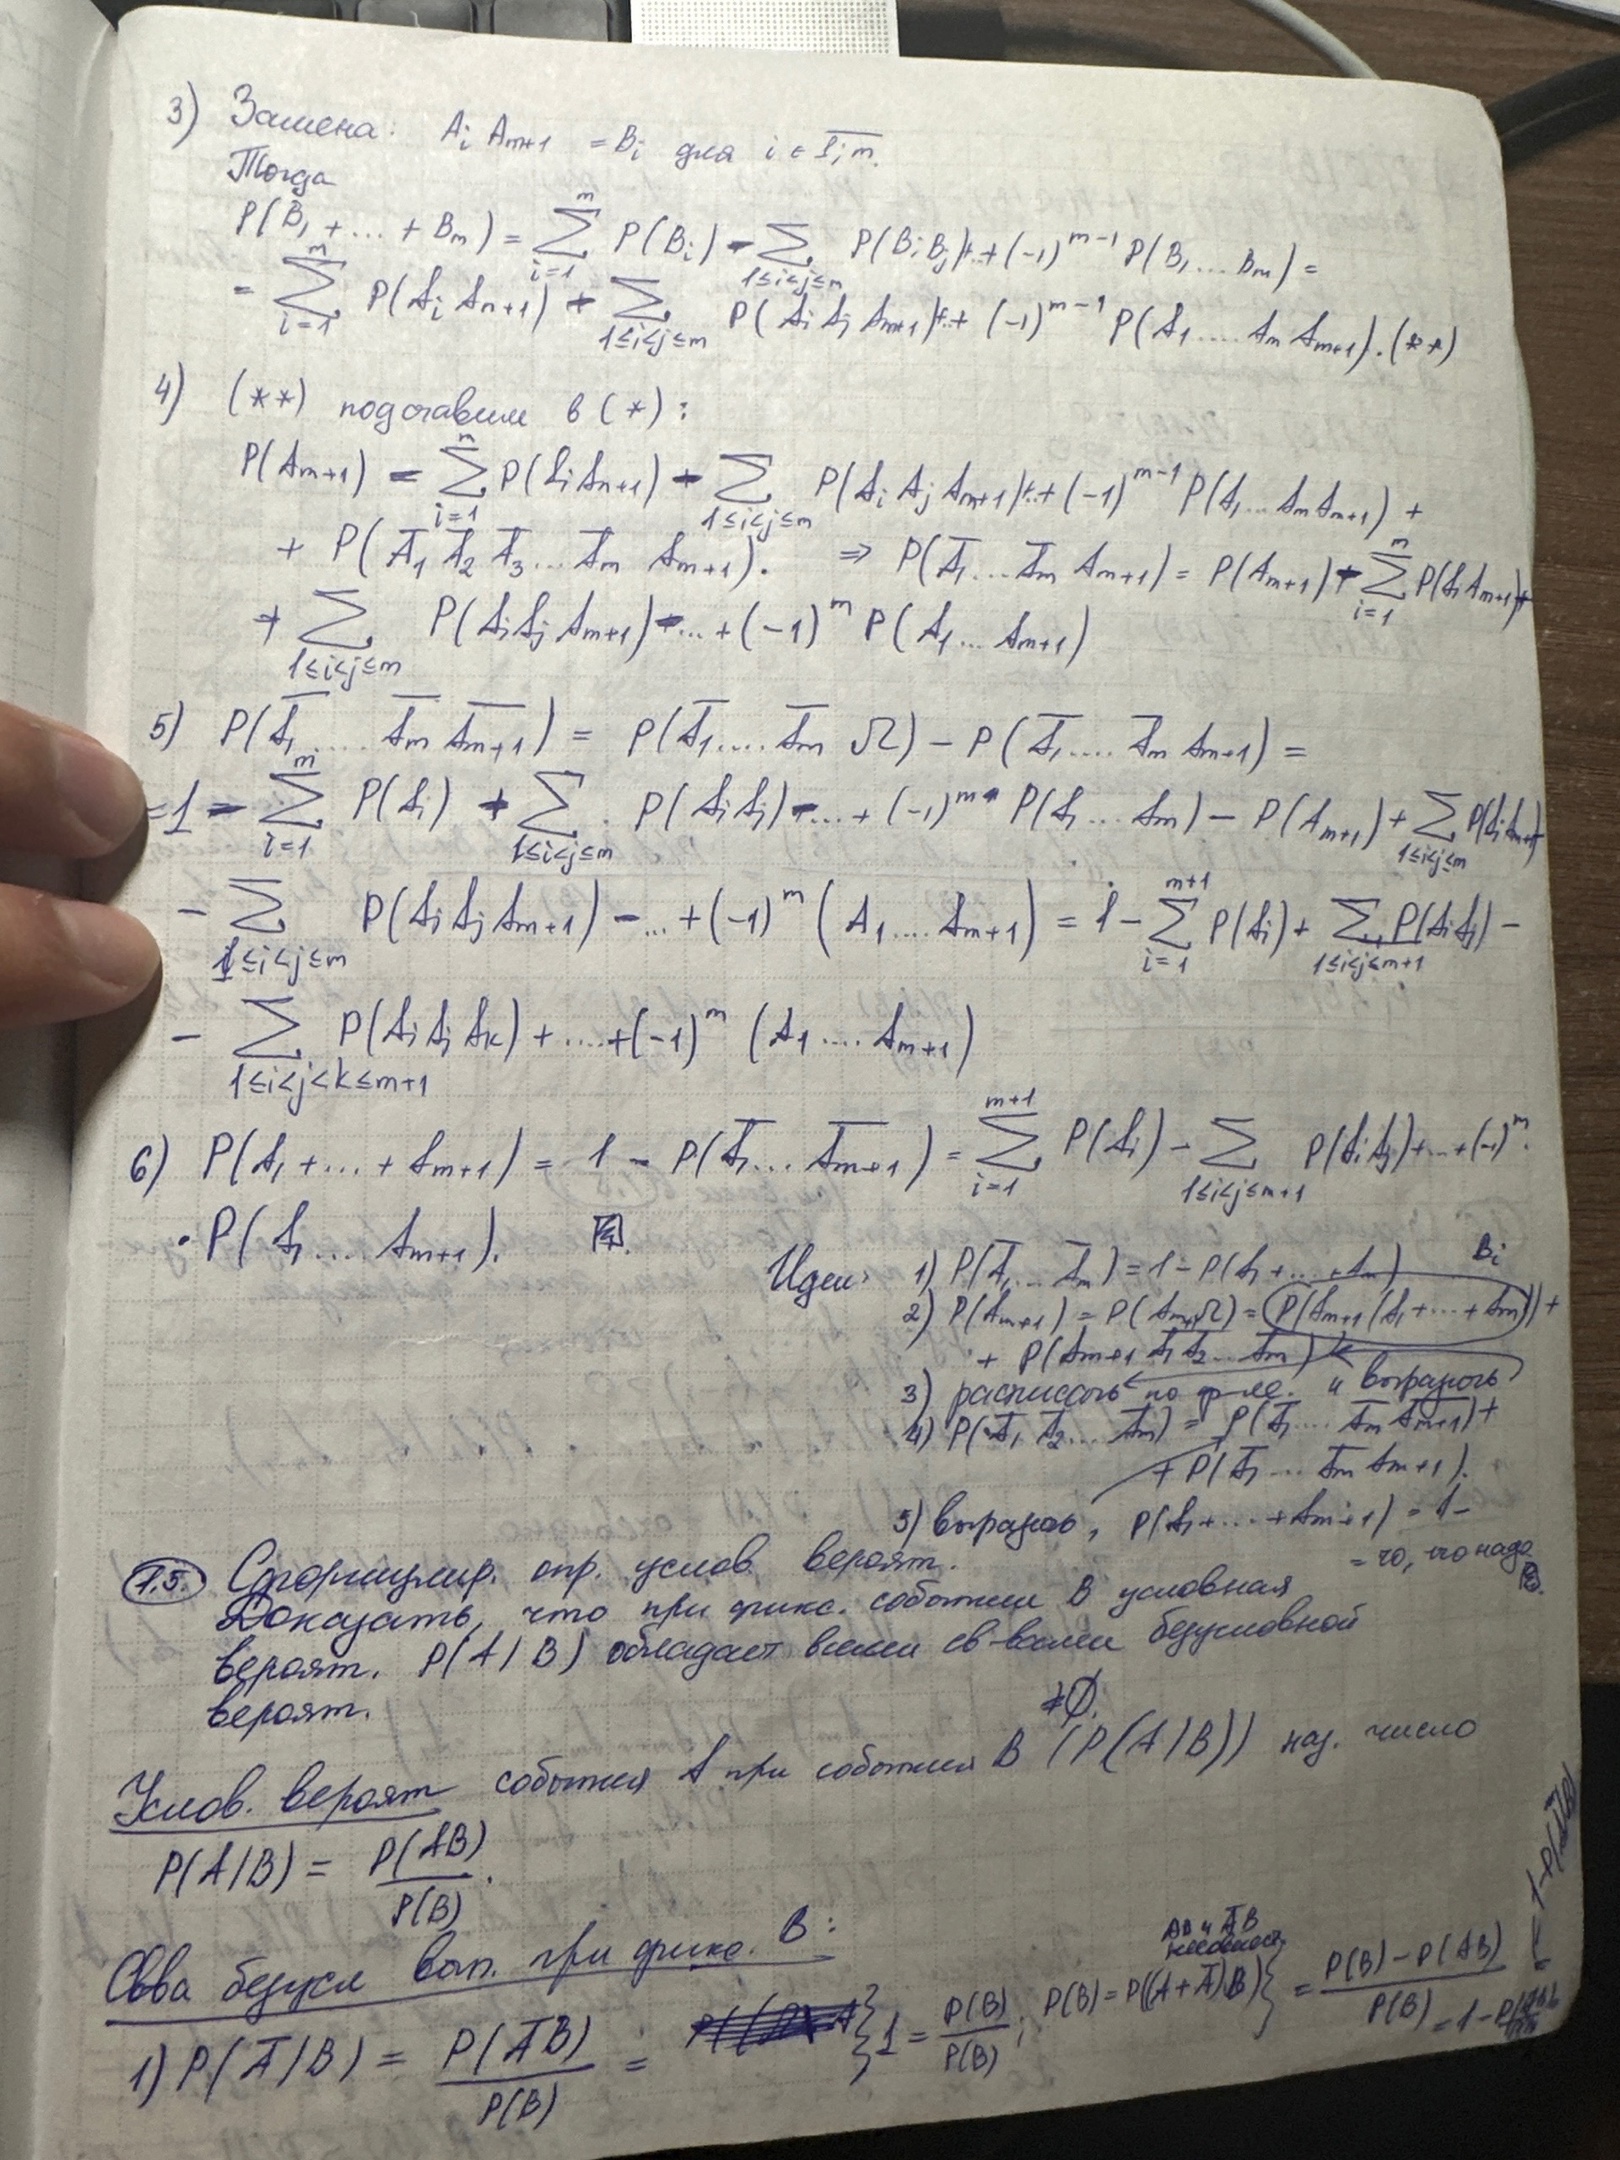 3) Замена: A_i A_{m+1} = B_i для i ∈ \overline{1, m}.
Тогда
P(B_1 + ... + B_m) = \sum_{i=1}^{m} P(B_i) - \sum_{1≤i<j≤m} P(B_i B_j) + ... + (-1)^{m-1} P(B_1 ... B_m) =
= \sum_{i=1}^{m} P(A_i A_{m+1}) - \sum_{1≤i<j≤m} P(A_i A_j A_{m+1}) + ... + (-1)^{m-1} P(A_1 .... A_m A_{m+1}). (**)
4) (**) подставим в (*) :
P(A_{m+1}) = \sum_{i=1}^{m} P(A_i A_{m+1}) - \sum_{1≤i<j≤m} P(A_i A_j A_{m+1}) + ... + (-1)^{m-1} P(A_1 ... A_m A_{m+1}) +
+ P(\overline{A}_1 \overline{A}_2 \overline{A}_3 ... \overline{A}_m A_{m+1}). ⇒ P(\overline{A}_1 ... \overline{A}_m A_{m+1}) = P(A_{m+1}) - \sum_{i=1}^{m} P(A_i A_{m+1}) +
+ \sum_{1≤i<j≤m} P(A_i A_j A_{m+1}) - ... + (-1)^m P(A_1 ... A_{m+1})
5) P(\overline{A_1} .... \overline{A_m} \overline{A_{m+1}}) = P(\overline{A}_1 .... \overline{A}_m Ω) - P(\overline{A}_1 .... \overline{A}_m A_{m+1}) =
= 1 - \sum_{i=1}^{m} P(A_i) + \sum_{1≤i<j≤m} P(A_i A_j) - ... + (-1)^m P(A_1 ... A_m) - P(A_{m+1}) + \sum_{1≤i<j≤m} P(A_i A_{m+1})
- \sum_{1≤i<j≤m} P(A_i A_j A_{m+1}) - ... + (-1)^m (A_1 .... A_{m+1}) = 1 - \sum_{i=1}^{m+1} P(A_i) + \sum_{1≤i<j≤m+1} P(A_i A_j) -
- \sum_{1≤i<j<k≤m+1} P(A_i A_j A_k) + .... + (-1)^m (A_1 .... A_{m+1})
6) P(A_1 + ... + A_{m+1}) = 1 - P(\overline{A_1} ... \overline{A_{m+1}}) = \sum_{i=1}^{m+1} P(A_i) - \sum_{1≤i<j≤m+1} P(A_i A_j) + ... + (-1)^m ·
· P(A_1 ... A_{m+1}).
Идеи: 1) P(\overline{A}_1 ... \overline{A}_m) = 1 - P(A_1 + ... + A_m)
B_i
2) P(A_{m+1}) = P(A_{m+1} Ω) = P(A_{m+1} (A_1 + ... + A_m)) +
+ P(A_{m+1} \overline{A}_1 \overline{A}_2 ... \overline{A}_m)
3) расписать по ф-ле. и выразить
4) P(\overline{A}_1 \overline{A}_2 ... \overline{A}_m) = P(\overline{A}_1 ... \overline{A}_m \overline{A}_{m+1}) +
+ P(\overline{A}_1 ... \overline{A}_m A_{m+1}).
5) выразить, P(A_1 + ... + A_{m+1}) = 1 -
= то, что надо
1.5. Сформулир. опр. услов. вероят.
Доказать, что при фикс. событии B условная
вероят. P(A/B) обладает всеми св-вами безусловной
вероят.
≠∅.
Услов. вероят события A при событии B (P(A/B)) наз. число
P(A/B) = \frac{P(AB)}{P(B)}.
Св-ва безусл вып. при фикс. B:
AB и \overline{A}B
несовмест.
1) P(\overline{A}/B) = \frac{P(\overline{A}B)}{P(B)} = } 1 = \frac{P(B)}{P(B)}; P(B) = P((A + \overline{A})B) } = \frac{P(B) - P(AB)}{P(B)} =